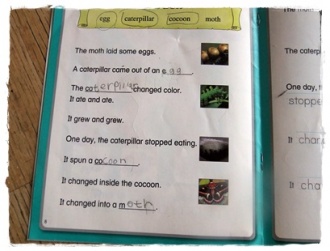 egg caterpillar cocoon moth
The moth laid some eggs.
A caterpillar came out of an egg.
The caterpillar changed color.
It ate and ate.
It grew and grew.
One day, the caterpillar stopped eating.
It spun a cocoon.
It changed inside the cocoon.
It changed into a moth.
8
The caterp
One day, the
stoppe
It chan
It cha